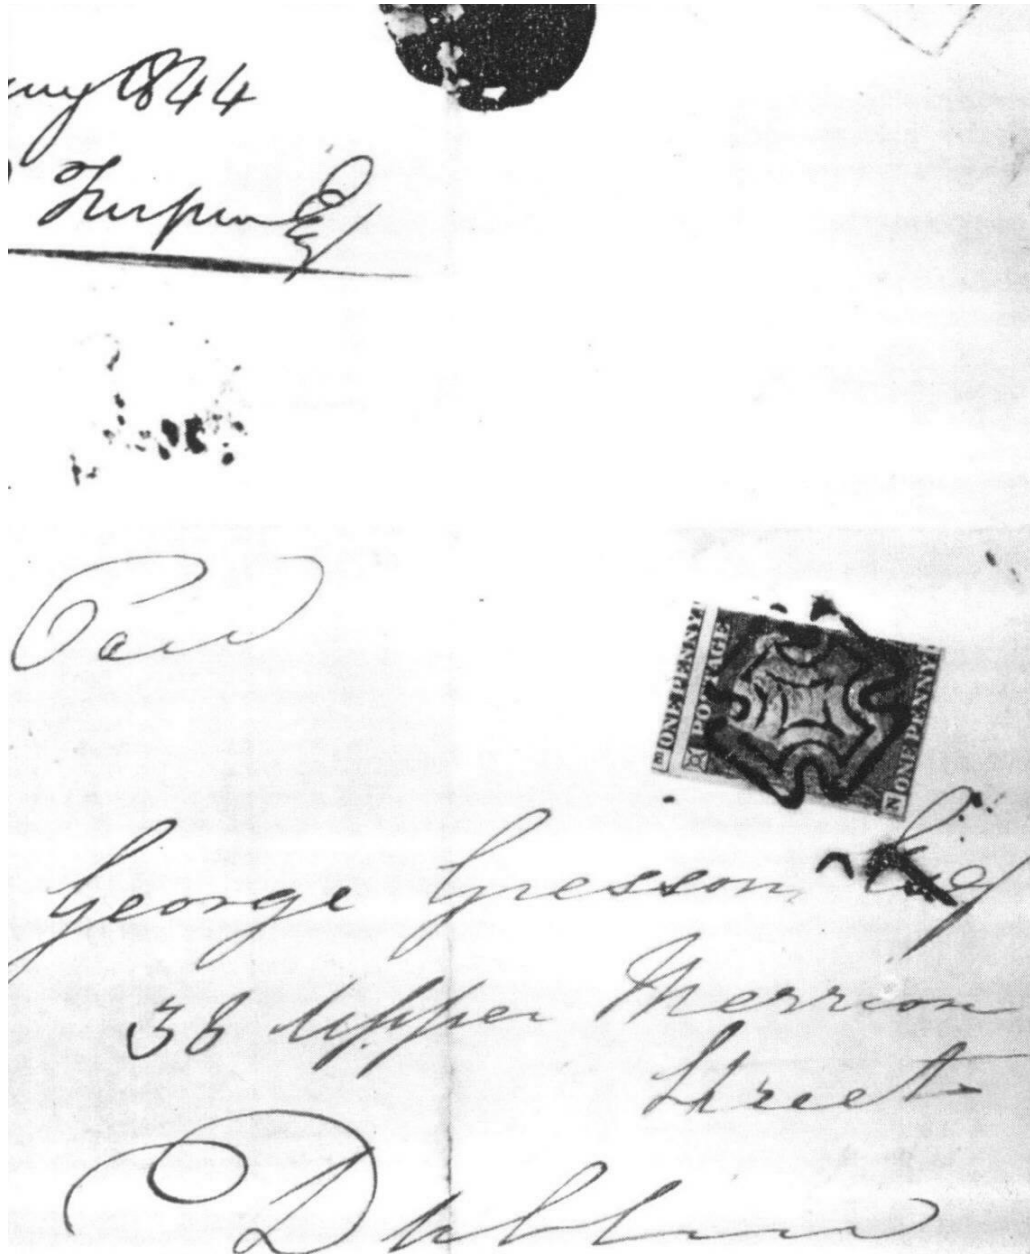 1844
Turpin Esq
Paid
ONE PENNY
POSTAGE
ONE PENNY
N
George Gresson, Esq
38 Upper Merrion
Street
Dublin